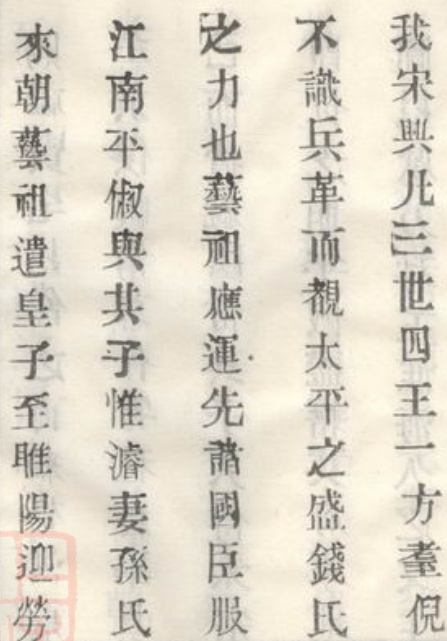 我宋興凡三世四王一方耋倪
不識兵革而覩太平之盛錢氏
之力也藝祖應運先諸國臣服
江南平俶與其子惟濬妻孫氏
來朝藝祖遣皇子至睢陽迎勞